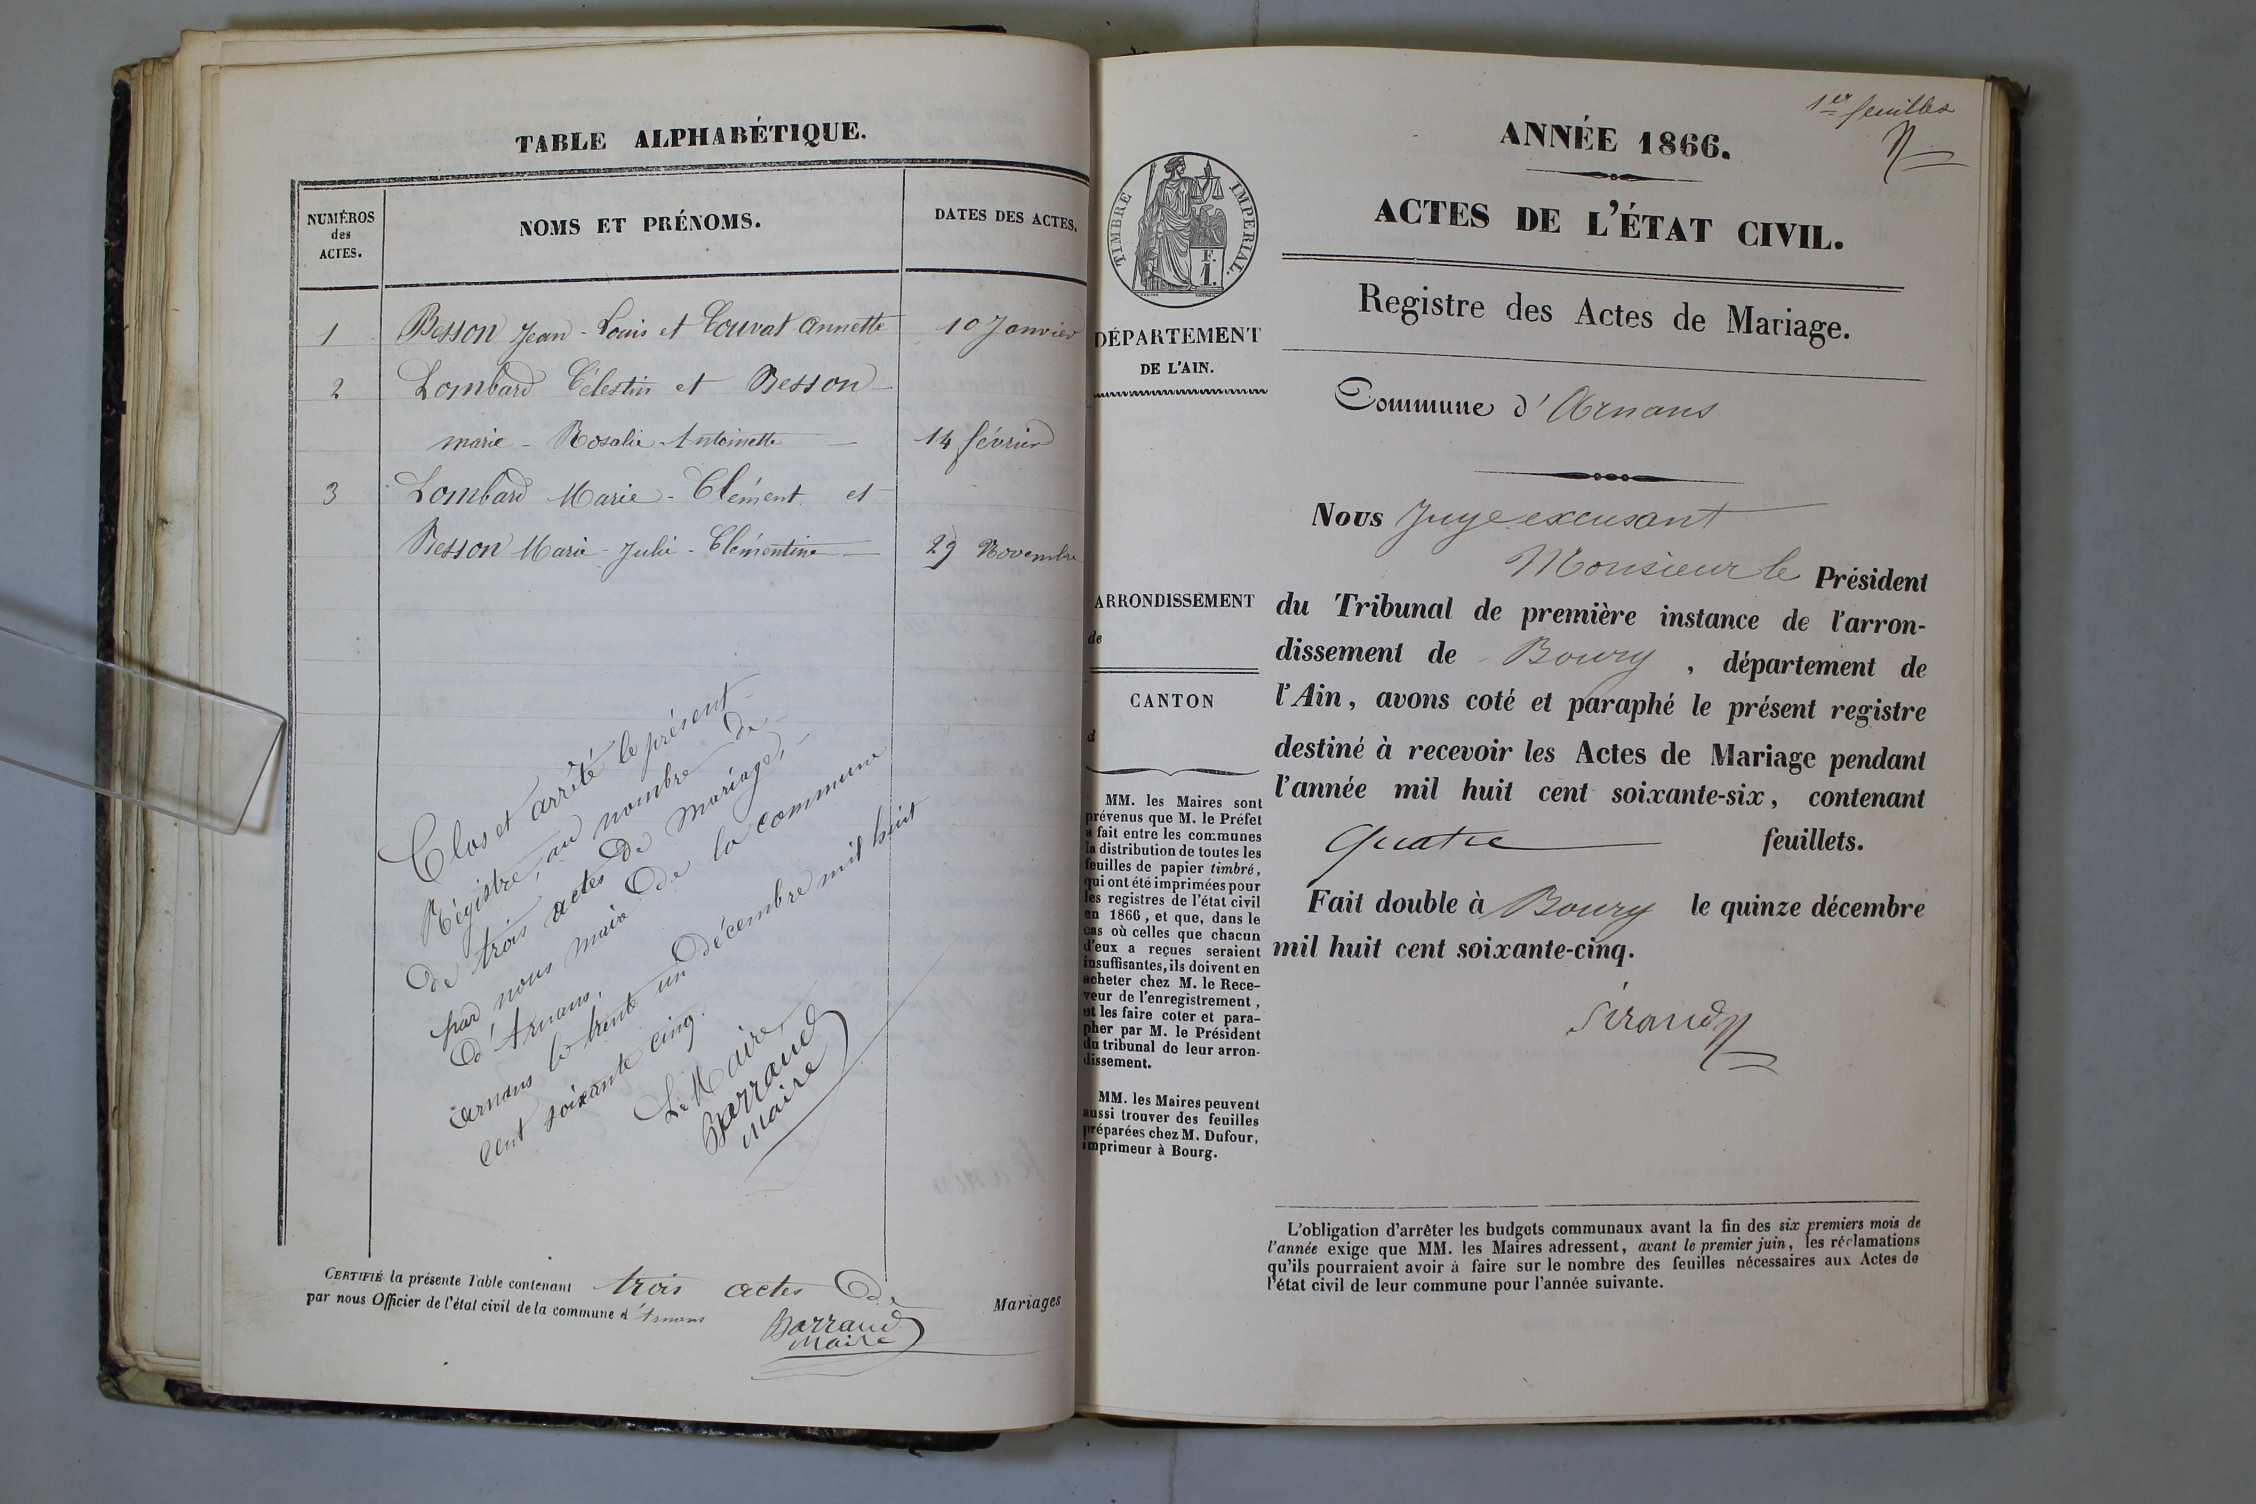 TABLE ALPHABÉTIQUE.
NUMÉROS
des
ACTES.
NOMS ET PRÉNOMS.
DATES DES ACTES.
1 Besson Jean-Louis et Convat annette 10 Janvier
2 Lombard Célestin et Besson
marie-Rosalie-Antoinette 14 février
3 Lombard Marie-Clément et
Besson Marie-Julie-Clémentine 29 Novembre
Clos et arrêté le présent
Régistre, au nombre de
de trois actes de mariage,
par nous maire de la commune
d'Arnans,
arnans le trente un décembre mil huit
cent soixante cinq.
Le Maire,
Barraud
maire
CERTIFIÉ la présente Table contenant trois actes de Mariages
par nous Officier de l'état civil de la commune d'Arnans
Barraud
maire
1er feuillet
ANNÉE 1866.
ACTES DE L'ÉTAT CIVIL.
TIMBRE IMPÉRIAL.
F.
1.
Registre des Actes de Mariage.
DÉPARTEMENT
DE L'AIN.
Commune d'Arnans
Nous Juge excusant
Monsieur le Président
du Tribunal de première instance de l'arron-
dissement de Bourg, département de
l'Ain, avons coté et paraphé le présent registre
destiné à recevoir les Actes de Mariage pendant
l'année mil huit cent soixante-six, contenant
quatre feuillets.
Fait double à Bourg le quinze décembre
mil huit cent soixante-cinq.
Sirand
ARRONDISSEMENT
de
CANTON
d
MM. les Maires sont
prévenus que M. le Préfet
a fait entre les communes
la distribution de toutes les
feuilles de papier timbré,
qui ont été imprimées pour
les registres de l'état civil
en 1866, et que, dans le
cas où celles que chacun
d'eux a reçues seraient
insuffisantes, ils doivent en
acheter chez M. le Rece-
veur de l'enregistrement,
et les faire coter et para-
pher par M. le Président
du tribunal de leur arron-
dissement.
MM. les Maires peuvent
aussi trouver des feuilles
préparées chez M. Dufour,
imprimeur à Bourg.
L'obligation d'arrêter les budgets communaux avant la fin des six premiers mois de
l'année exige que MM. les Maires adressent, avant le premier juin, les réclamations
qu'ils pourraient avoir à faire sur le nombre des feuilles nécessaires aux Actes de
l'état civil de leur commune pour l'année suivante.